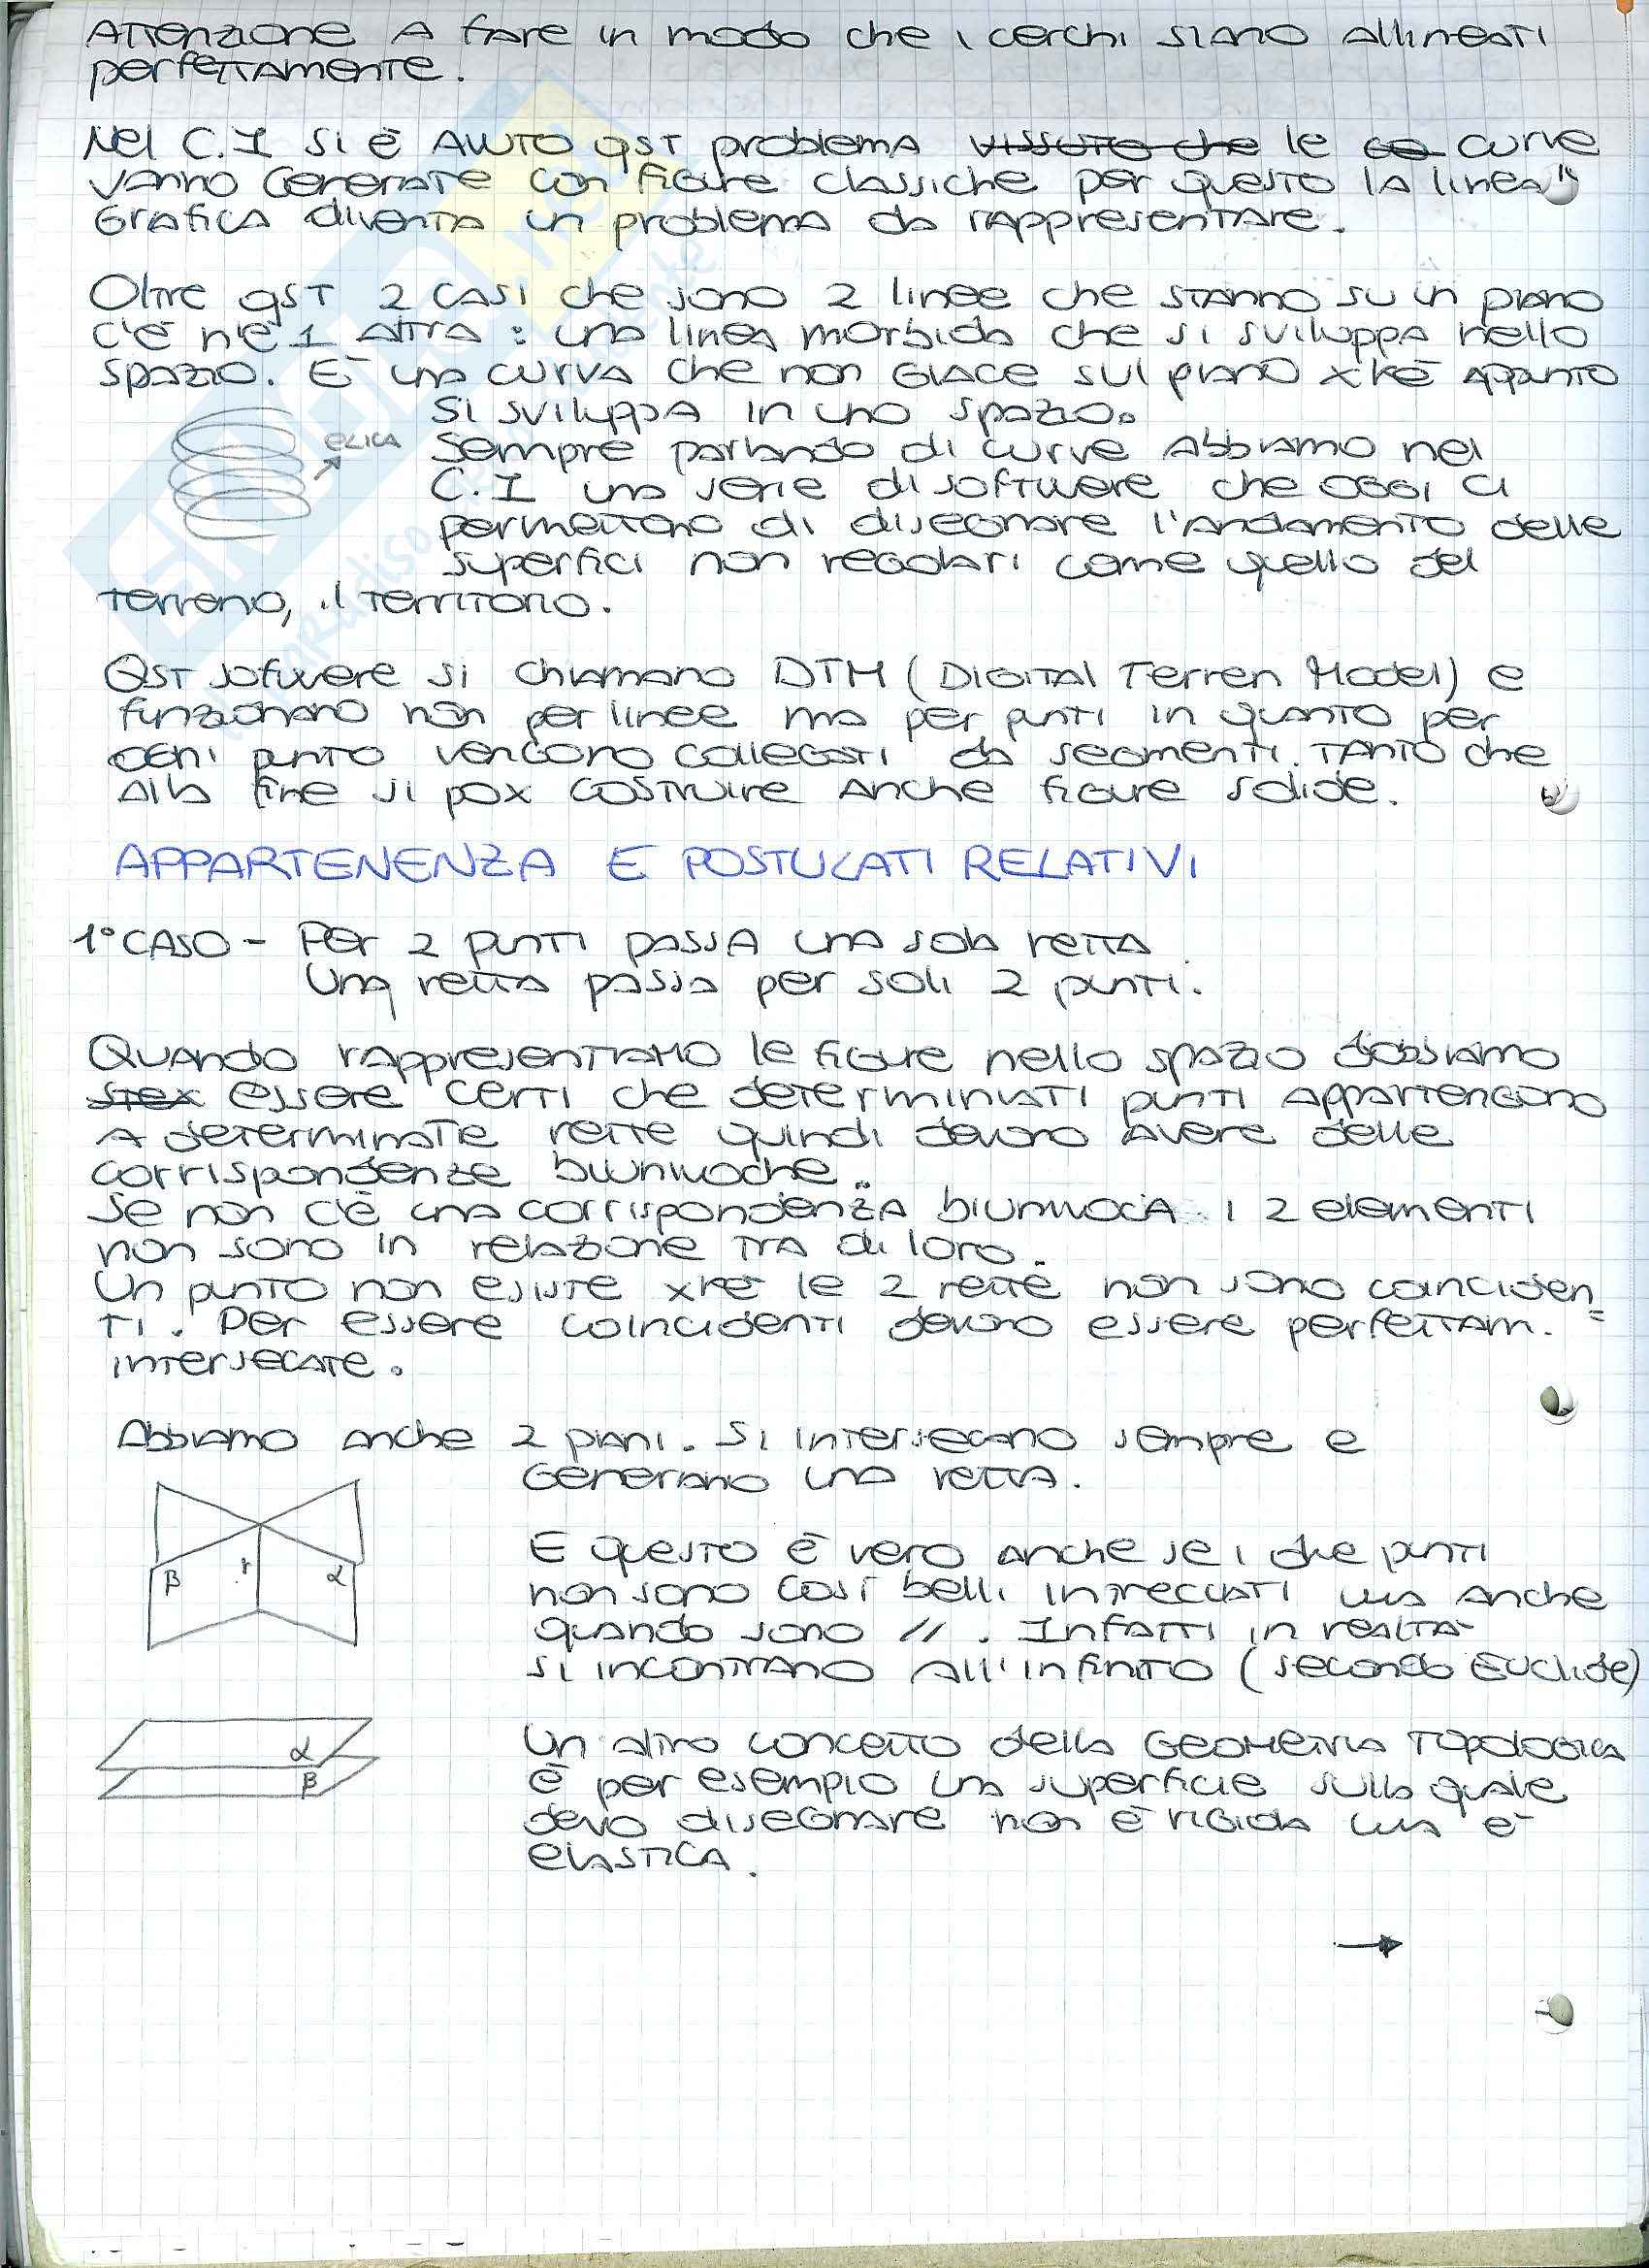 Attenzione a fare in modo che i cerchi siano allineati
perfettamente.
Nel C.I si è avuto qst problema vissuto che le curve
vanno generate con figure classiche per questo la linea
grafica diventa un problema da rappresentare.
Oltre qst 2 casi che sono 2 linee che stanno su un piano
c'è n'è 1 altra : una linea morbida che si sviluppa nello
spazio. È una curva che non giace sul piano xkè appunto
si sviluppa in uno spazio.
elica
Sempre parlando di curve abbiamo nel
C.I una serie di software che oggi ci
permettono di disegnare l'andamento delle
superfici non regolari come quello del
terreno, il territorio.
Qst sofwere si chiamano DTM (Digital Terren Model) e
funzionano non per linee ma per punti in quanto per
ogni punto vengono collegati da segmenti. Tanto che
alla fine si pox costruire anche figure solide.
APPARTENENZA E POSTULATI RELATIVI
1° CASO - Per 2 punti passa una sola retta
Una retta passa per soli 2 punti.
Quando rappresentiamo le figure nello spazio dobbiamo
stex essere certi che determinati punti appartengono
a determinate rette quindi devono avere delle
corrispondenze biunivoche.
Se non c'è una corrispondenza biunivoca i 2 elementi
non sono in relazione tra di loro.
Un punto non esiste xkè le 2 rette non sono coinciden
ti. Per essere coincidenti devono essere perfettam.
intersecate.
Abbiamo anche 2 piani. Si intersecano sempre e
generano una retta.
β r α
E questo è vero anche se i due punti
non sono così belli intrecciati ma anche
quando sono //. Infatti in realtà
si incontrano all'infinito (secondo Euclide)
α
β
Un altro concetto della geometria topologica
è per esempio una superficie sulla quale
devo disegnare non è rigida ma è
elastica.